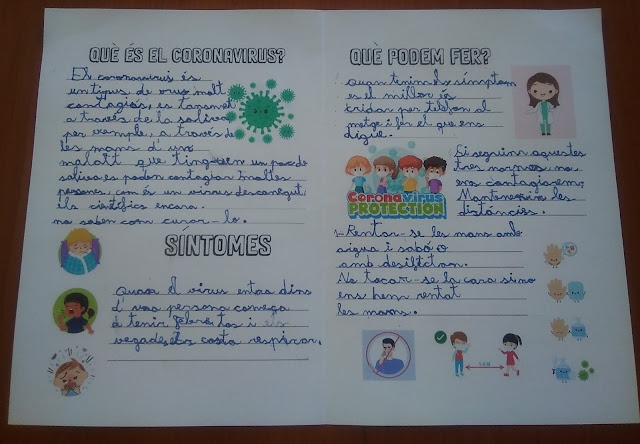 QUÈ ÉS EL CORONAVIRUS?
El coronavirus és
un tipus de virus molt
contagiós, es transmet
a través de la saliva
per exemple, a través de
les mans d'un
malalt que tinguen un poc de
saliva es poden contagiar moltes
persones, com és un virus desconegut,
els científics encara
no saben com curar-lo.
SÍNTOMES
Quan el virus entra dins
d'una persona comença
a tenir febre tos i
vegades costa respirar.
QUÈ PODEM FER?
Quan tenim símptomes
es el millor és
cridar per telèfon al
metge i fer el que ens
digue.
CORONAVIRUS
PROTECTION
Si seguim aquestes
tres normes no
ens contagiarem,
Mantenir les
distàncies.
Rentar-se les mans amb
aigua i sabó o
amb
No tocar-se la cara si no
ens hem rentat
les mans.